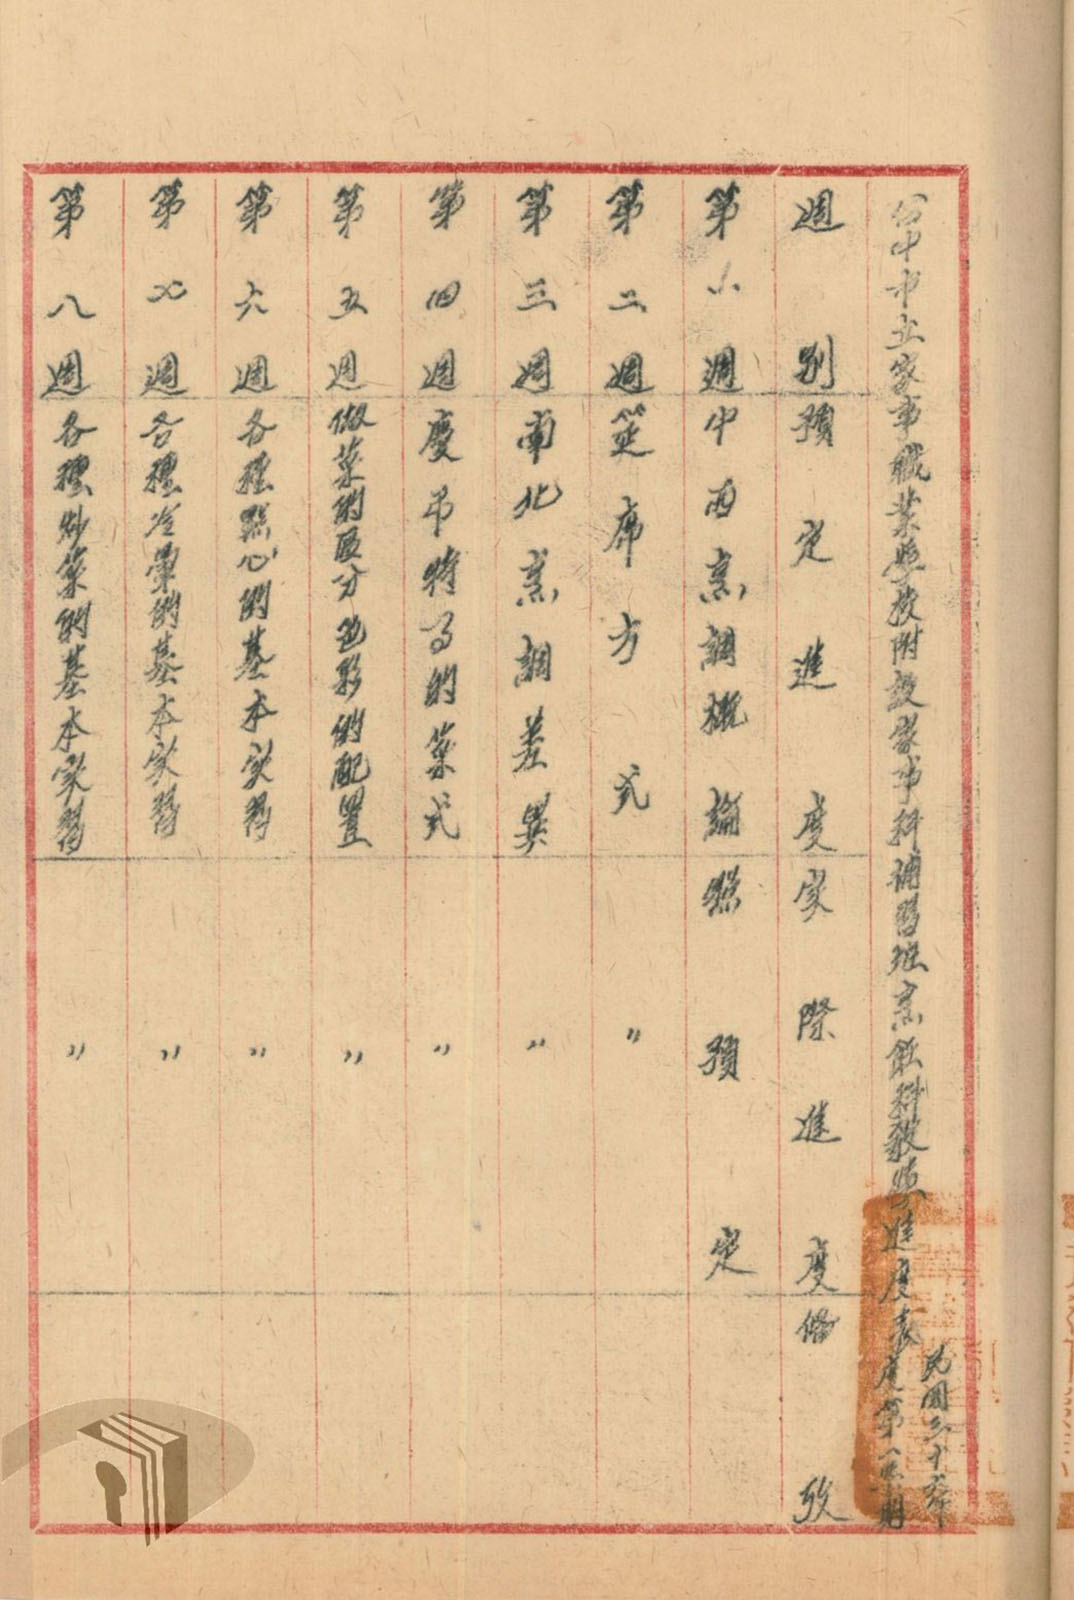 台中市立家事職業學校附設家事科補習班烹飪科教學進度表
民國三十六年度第一學期
週別 預定進度 實際進度 備攷
第一週 中西烹調概論 照預定
第二週 筵席方式 〃
第三週 南北烹調差異 〃
第四週 慶弔特多的菜式 〃
第五週 做菜的區分色彩的配置 〃
第六週 各種點心的基本實習 〃
第七週 各種冷葷的基本實習 〃
第八週 各種炒菜的基本實習 〃